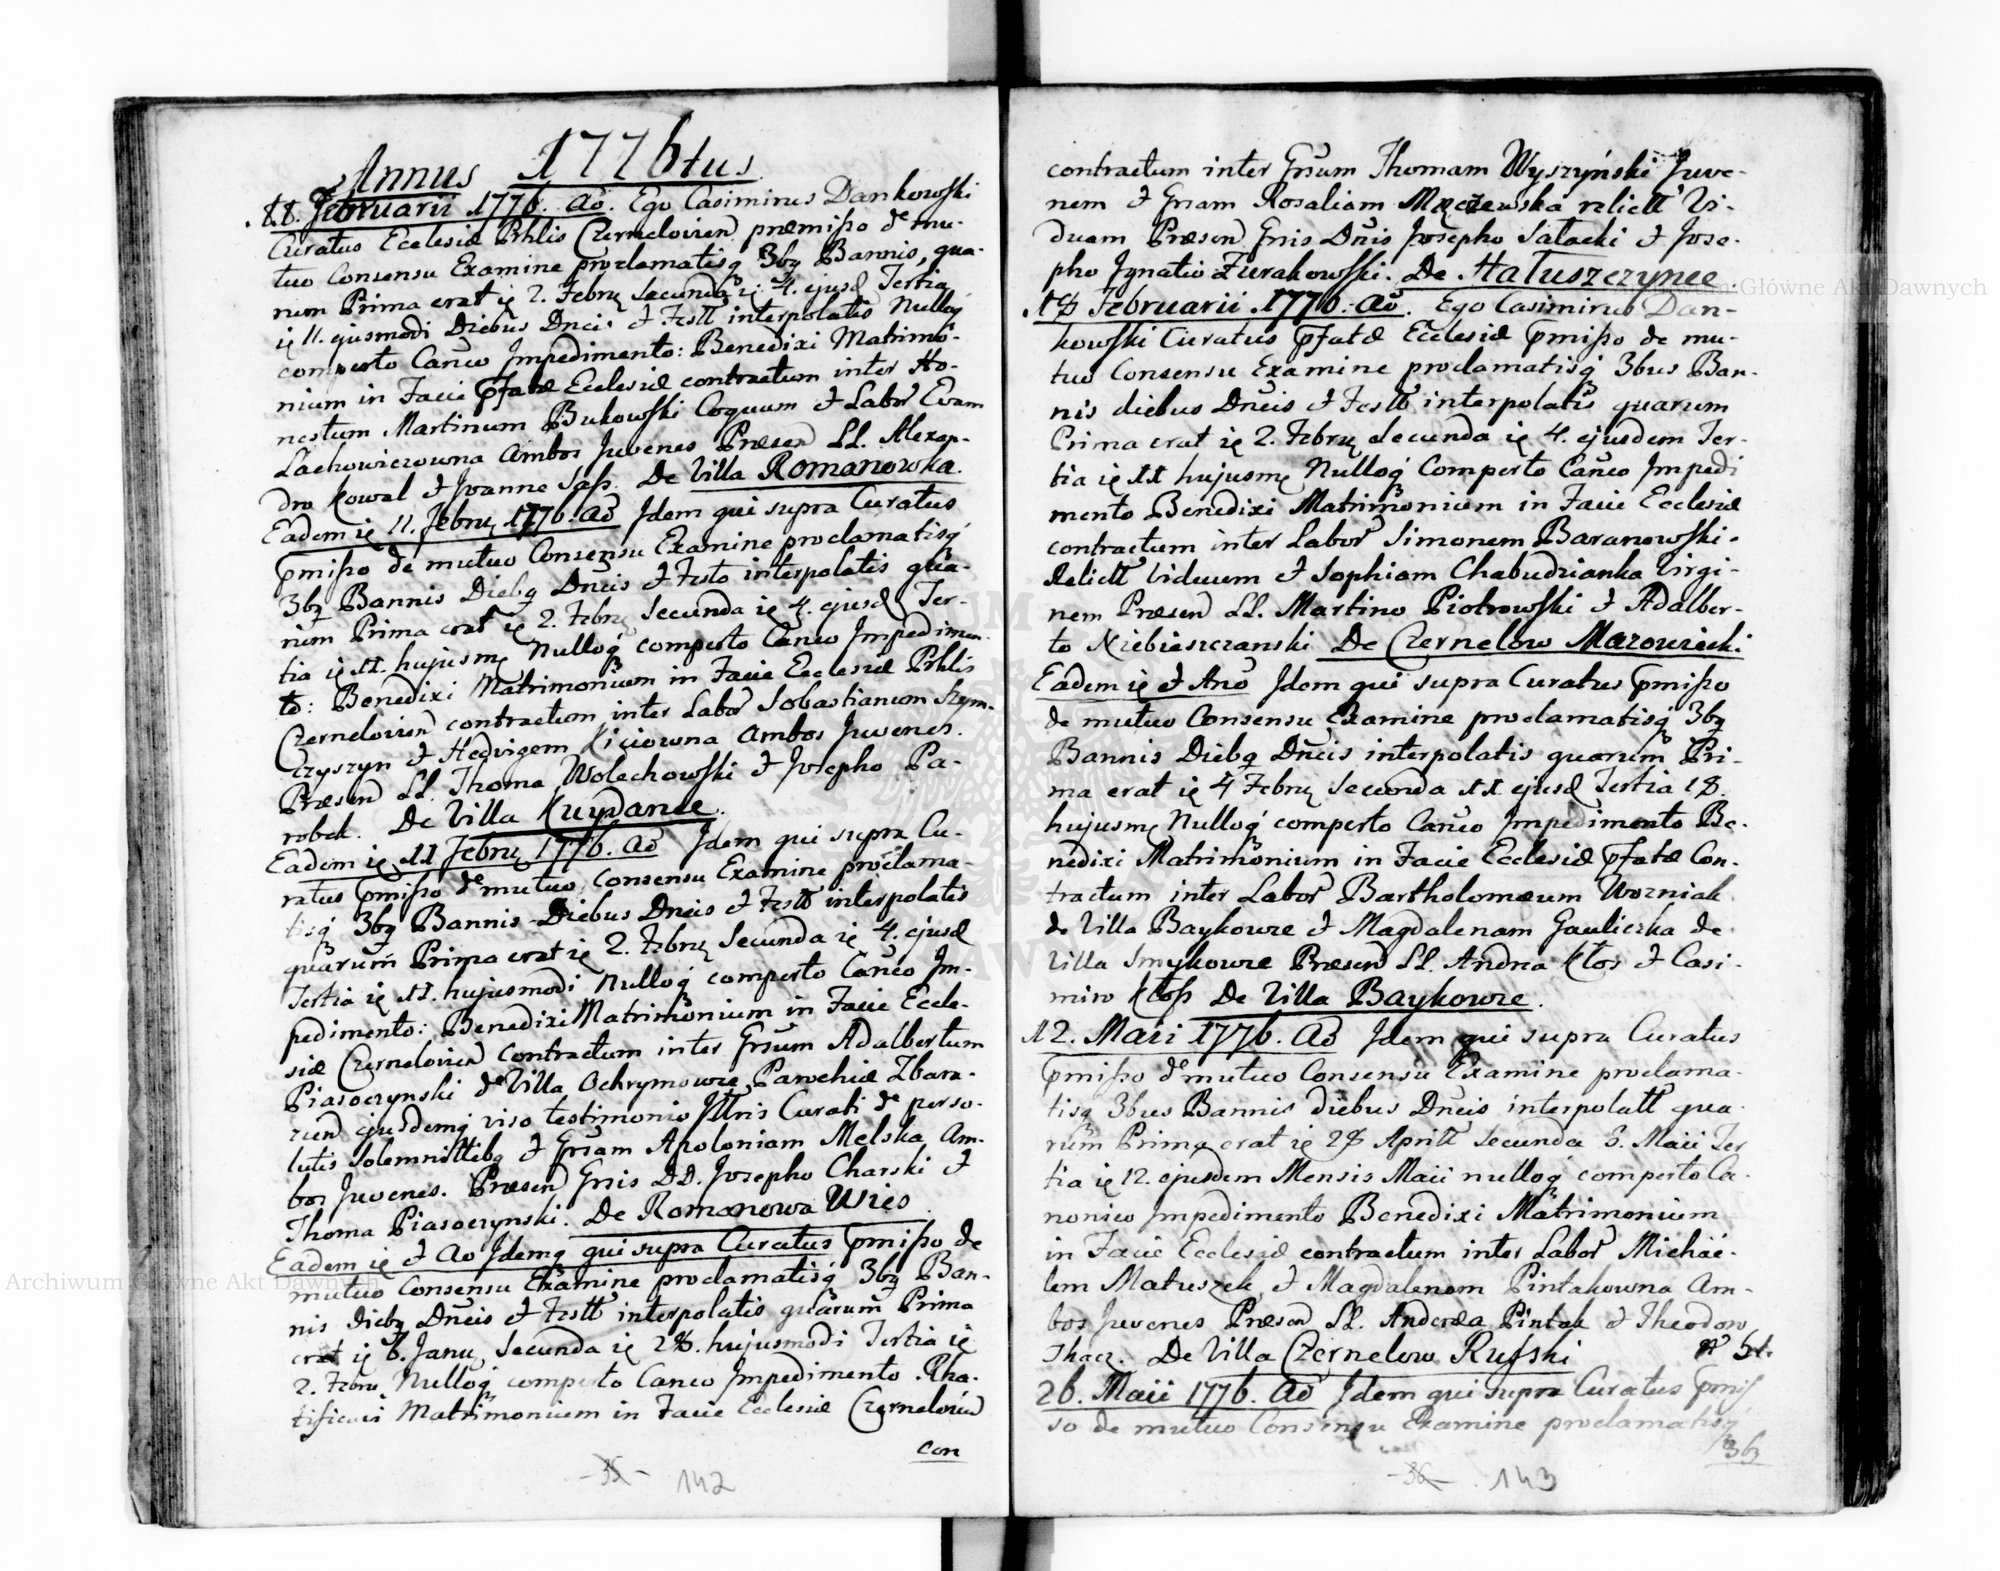 Annus 1776tus
11. Februarii 1776. Ao. Ego Casimirus Dankowski
Curatus Ecclesiæ Prhlis Czerneloviens præmisso de mu-
tuo Consensu Examine proclamatisq 3bq Bannis, qua-
rum Prima erat ię 2. Febrų Secunda ię 4. ejusd Tertia
ię 11. ejusmodi Diebus Dncis & Festt interpolatis Nulloq
comperto Canco Impedimento: Benedixi Matrimo-
nium in Facie pfatæ Ecclesiæ contractum inter Ho-
nestum Martinum Bukowski Coquum & Labor Evam
Lachowiczowna Ambos Juvenes Præsen LL. Alexan-
dro Kowal & Joanne Sass. De Villa Romanowka.
Eadem ię 11. Febrų 1776. Ao Idem qui supra Curatus
pmisso de mutuo Consensu Examine proclamatisq
3bq Bannis Diebq Dncis & Festo interpolatis qua-
rum Prima erat ię 2. Febrų Secunda ię 4. ejusd Ter-
tia ię 11. hujusmę Nulloq comperto Canco Impedimen-
to: Benedixi Matrimonium in Facie Ecclesiæ Prhlis
Czernelovien contractum inter Labor Sobastianum Szym-
Czyszyn & Hedvigem Kiciowna Ambos Juvenes.
Præsen LL. Thoma Wolechowski & Josepho Pa-
robek. De Villa Kuydance.
Eadem ię 11 Febrų 1776. Ao Idem qui supra Cu-
ratus pmisso de mutuo Consensu Examine proclama-
tisq 3bq Bannis Diebus Dncis & Festt interpolatis
quarum Prima erat ię 2. Febrų Secunda ię 4. ejusd
Tertia ię 11. hujusmodi Nulloq comperto Canco Im-
pedimento: Benedixi Matrimonium in Facie Eccle-
siæ Czernelovien contractum inter Grsum Adalbertum
Piasoczynski de Villa Ochrymowce Parochiæ Zbara-
zien ejusdemq viso testimonio Illtris Curati de perso-
lutis Solemnittibq & Grsam Apoloniam Melska Am-
bos Juvenes. Præsen Gnis DD. Josepho Charski &
Thoma Piasoczynski. De Romanowa Wies.
Eadem ię & Ao Idemq qui supra Curatus pmisso de
mutuo Consensu Examine proclamatisq 3bq Ban-
nis Diebq Dncis & Festt interpolatis quarum Prima
erat ię 6. Janų Secunda ię 28. hujusmodi Tertia ię
2. Febrų Nulloq comperto Canco Impedimento. Rha-
tificavi Matrimonium in Facie Ecclesiæ Czernelovien
con
- 35 - 142
contractum inter Grsum Thomam Wyszyński Juve-
nem & Grsam Rosaliam Męczewska relictt Vi-
duam Præsen Gnis Dnis Josepho Salacki & Jose-
pho Ignatio Zurakowski. De Hatuszczynce.
18 Februarii 1776. Ao. Ego Casimirus Dan-
kowski Curatus pfatæ Ecclesiæ pmisso de mu-
tuo Consensu Examine proclamatisq 3bus Ban-
nis diebus Dncis & Festt interpolatis quarum
Prima erat ię 2. Febrų Secunda ię 4. ejusdem Ter-
tia ię 11 hujusmę Nulloq Comperto Canco Impedi
mento Benedixi Matrimonium in Facie Ecclesiæ
contractum inter Labor Simonem Baranowski.
Relictt Viduum & Sophiam Chabudzianka Virgi-
nem Præsen LL. Martino Piotrowski & Adalber-
to Niebieszczanski De Czernelow Mazowiecki.
Eadem ię & Ano Idem qui supra Curatus pmisso
de mutuo Consensu Examine proclamatisq 3bq
Bannis Diebq Dncis interpolatis quarum Pri-
ma erat ię 4 Febrų Secunda 11 ejusd Tertia 18.
hujusmę Nulloq comperto Canco Impedimento Be-
nedixi Matrimonium in Facie Ecclesiæ pfatæ Con-
tractum inter Labor Bartholomæum Wozniak
de Villa Baykowce & Magdalenam Gauliczka de
Villa Smykowce Præsen LL. Andrea Kłos & Casi-
miro Kłoss De Villa Baykowce.
12. Maii 1776. Ao Idem qui supra Curatus
pmisso de mutuo Consensu Examine proclama-
tisq 3bus Bannis diebus Dncis interpolatt qua-
rum Prima erat ię 28 Aprilt Secunda 5. Maii Ter
tia ię 12. ejusdem Mensis Maii nulloq comperto Ca-
nonico Impedimento Benedixi Matrimonium
in Facie Ecclesiæ contractum inter Labor Michaë-
lem Matuszek & Magdalenam Pintakowna Am-
bos Juvenes Præsen LL. Andrea Pintak & Theodoro
Tkacz. De Villa Czernelow Ruski
26. Maii 1776. Ao Idem qui supra Curatus pmis
so de mutuo Consensu Examine proclamatisq
3bq
- 36 - 143
Archiwum Główne Akt Dawnych
Archiwum Główne Akt Dawnych